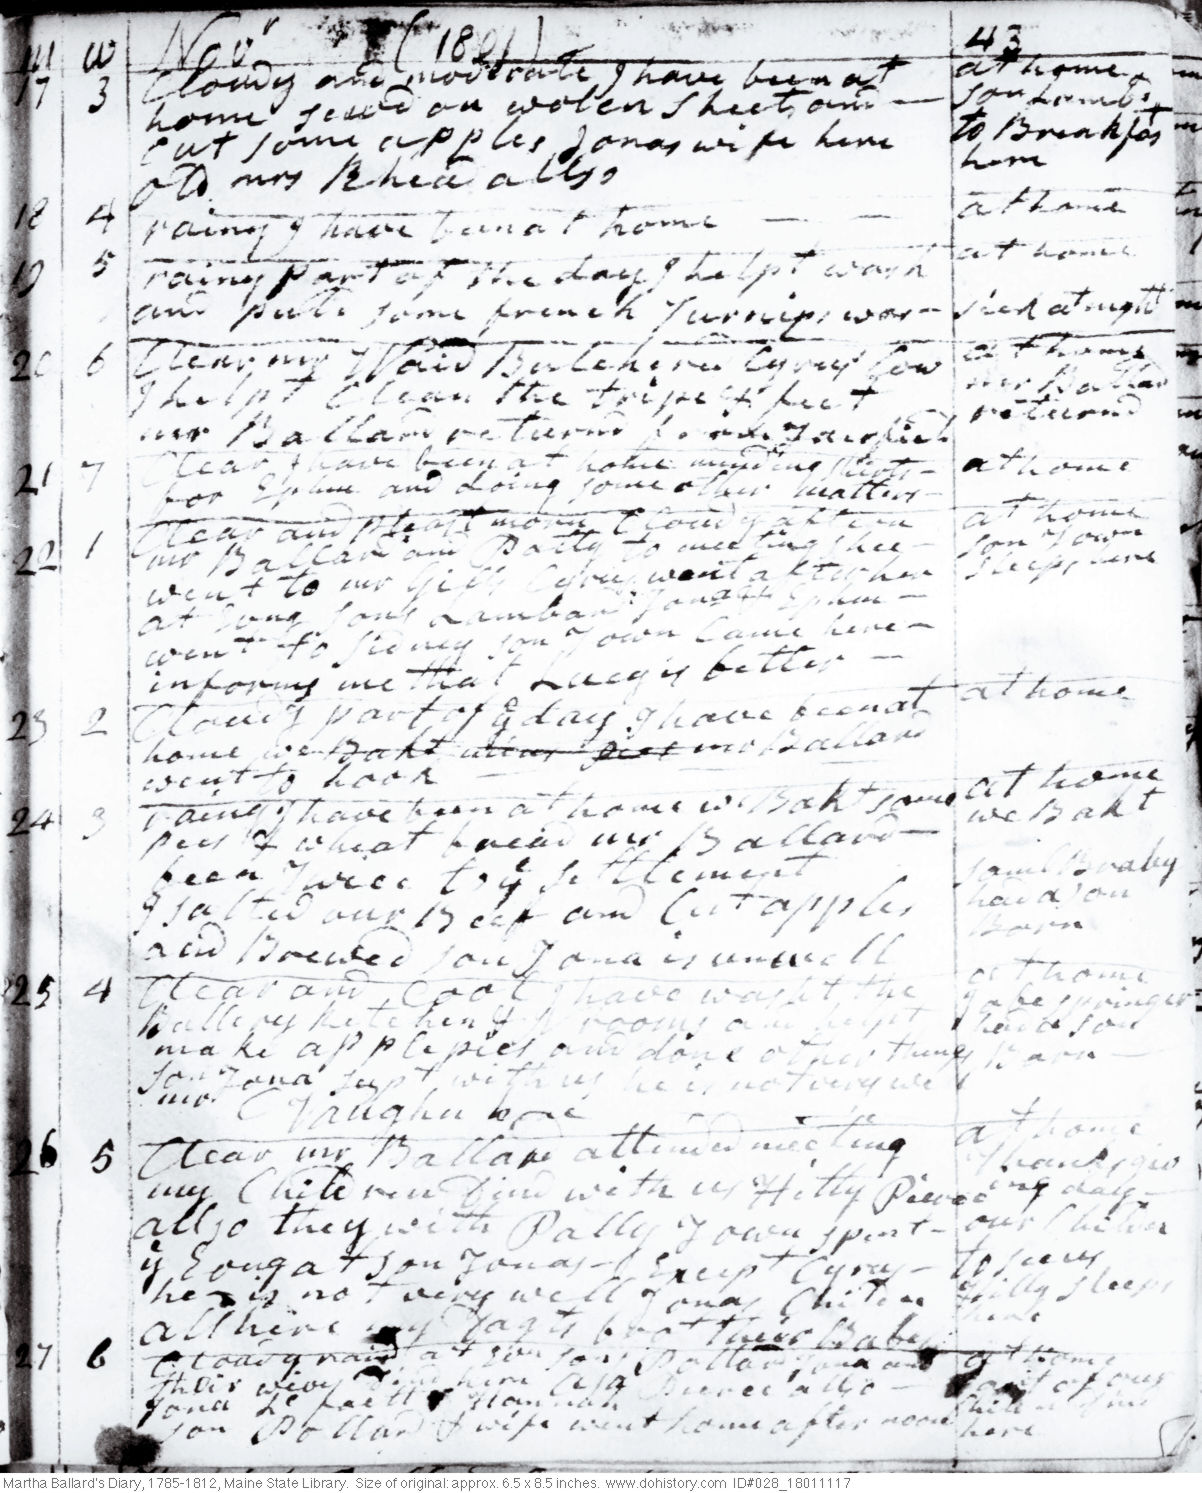 M W Nov r (1801) 43
17 3 Cloudy and moderate I have been at at home
home sewd on wolen sheets and — son Lambd
Cut some apples Jonas wife here to Breakfast
old mrs Rhead allso here
18 4 rainy I have been at home — — at home
19 5 rainy part of the day I helpt wash at home
and pull some french Turnips was — sick at night
20 6 Clear mr Waid Butchered Cyrus Cow at home
I helpt Clean the tripe & feet mr Ballard
mr Ballard returnd from returnd
21 7 Clear I have been at home mending at home
for Ephm and doing some other matters —
22 1 Clear and pleast morn Cloudy aftern at home
mr Ballard and Patty to meeting shee — son Town
went to mr Gills Cyrus went after her sleeps here
at Evng sons Lambard Jonas & Ephm —
went to Sidney son Town Came here —
informs me that Lucy is better —
23 2 Cloudy part of ye day I have been at at home
home we Bakt pies mr Ballard
went to hook —
24 3 rainy I have been at home we Bakt some at home
pies & wheat bread mr Ballard — we Bakt
been twice to ye settlement saml Braby
I salted our Beef and Cut apples had a son
and Brewed son Jona is unwell Born
25 4 Clear and Cool I have washt the at home
kitchen & rooms and helpt Jabe springer
make apple pies and done other things had a son
son Jona supt with us he is not very well Born —
mr Vaughn here
26 5 Clear mr Ballard attended meeting at home
my Children dind with us Hitty Pierce Thanksgiv
allso they with Polly Town spent — ing day —
ye Evng at son Jonas — Except Cyrus — our Childen
he is not very well Jonas Childen to see us
all here my Dagts brot their Babes Hitty sleeps
here
27 6 Cloudy rain at Evn sons Pollard Jona and at home
their wives dind here Asa Pierce allso — part of our
Jona Hannah Childen dind
son Pollard & wife went home after noon here
Martha Ballard's Diary, 1785-1812, Maine State Library. Size of original: approx. 6.5 x 8.5 inches. www.dohistory.com ID#028_18011117